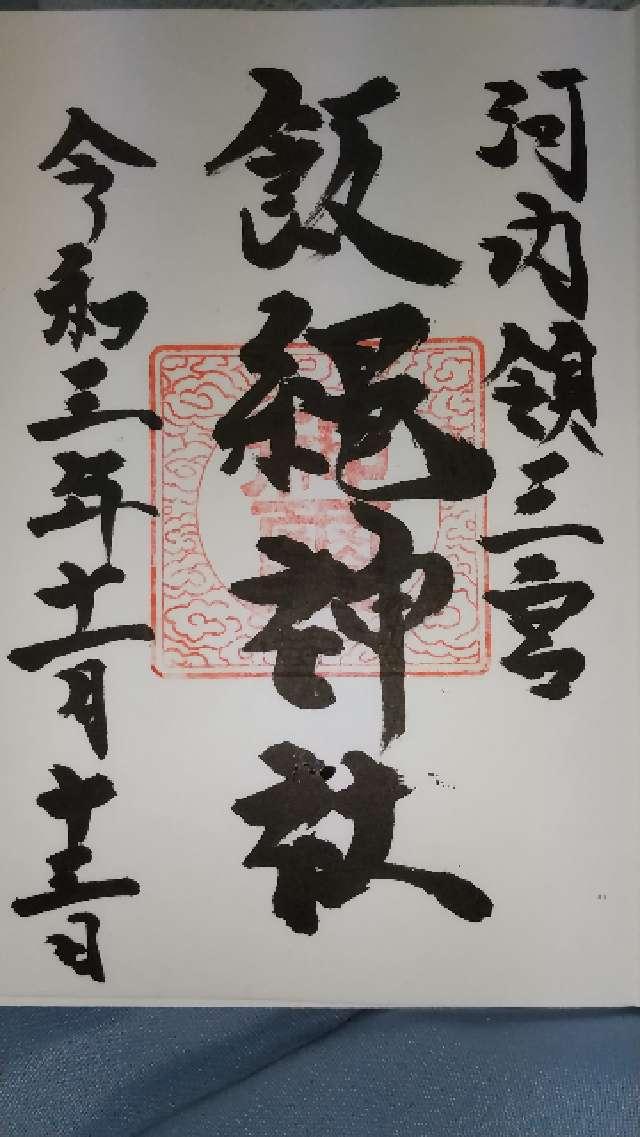 河内領三宮
飯縄神社
令和三年十一月十三日